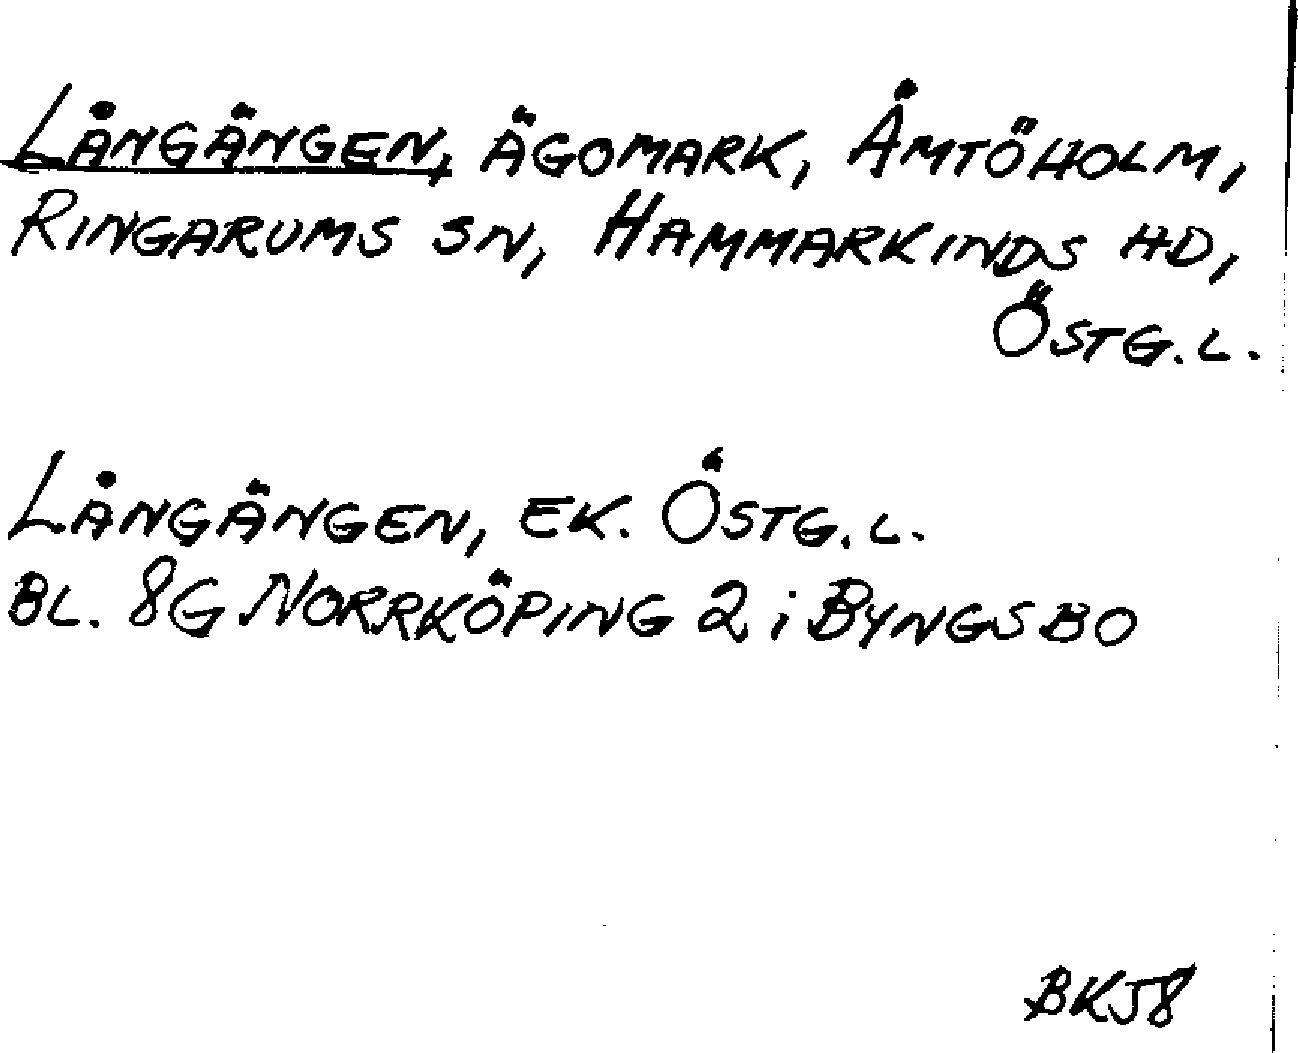 LÅNGÄNGEN, ÄGOMARK, ÅMTÖHOLM,
RINGARUMS SN, HAMMARKINDS HD,
ÖSTG. L.
LÅNGÄNGEN, EK. ÖSTG. L.
BL. 8G NORRKÖPING 2 i BYNGSBO
BKJ8